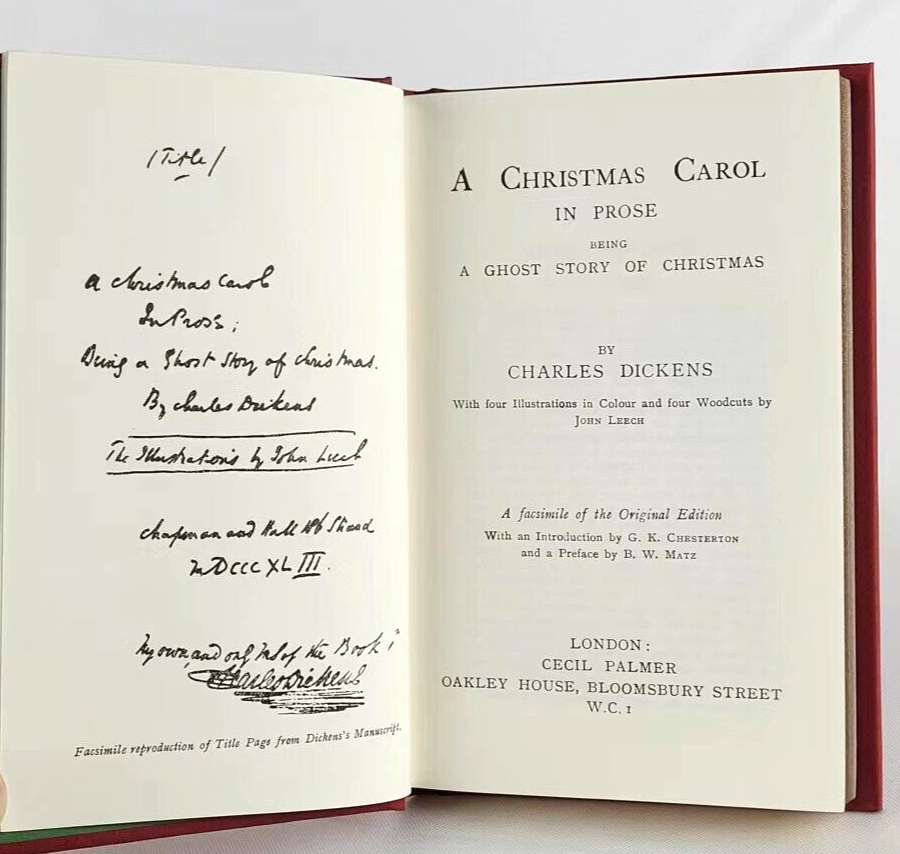 /Title/
A Christmas Carol
In Prose;
Being a Ghost Story of Christmas.
By Charles Dickens
The Illustrations by John Leech
Chapman and Hall 186 Strand
MDCCCXLIII.
My own, and only MS of the Book
Charles Dickens
Facsimile reproduction of Title Page from Dickens's Manuscript.
A CHRISTMAS CAROL
IN PROSE
BEING
A GHOST STORY OF CHRISTMAS
BY
CHARLES DICKENS
With four Illustrations in Colour and four Woodcuts by
JOHN LEECH
A facsimile of the Original Edition
With an Introduction by G. K. CHESTERTON
and a Preface by B. W. MATZ
LONDON:
CECIL PALMER
OAKLEY HOUSE, BLOOMSBURY STREET
W.C. 1